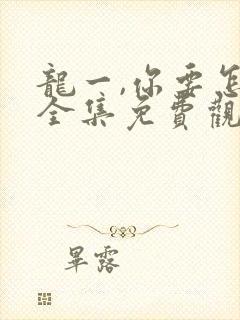 龍一,你要怎
全集免費觀
畢露